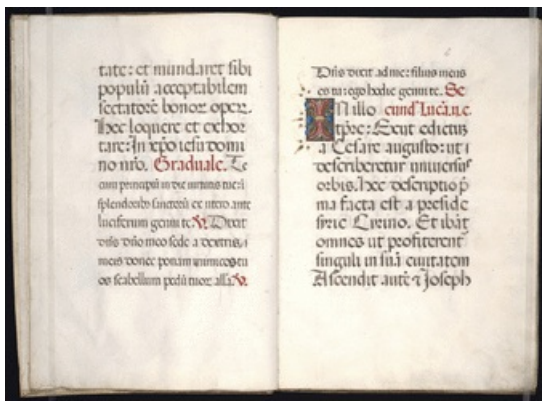 tate: et mundaret sibi
populū acceptabilem
sectatorē bonoꝝ opeꝝ.
Hec loquere et exhor
tare: In xp̄o iesu domi
no nr̄o. Graduale. Te
cum principiū in die uirtutis tue: ī
splendoribꝰ sanctorū ex utero ante
luciferum genui te. V. Dixit
dn̄s dn̄o meo sede a dextris,
meis donec ponam inimicos tu
os scabellum pedū tuoꝝ. all'a. V.
Dn̄s dixit ad me: filius meus
es tu: ego hodie genui te. Se
IN illo cund' Lucā. n. c.
tp̄re: Exiit edictū
a Cesare augusto: ut
describeretur uniuersus
orbis. Hec descriptio p̄
ma facta est a preside
syrie Cirino. Et ibāt
omnes ut profiterent
singuli in suā ciuitatem
Ascendit autē ⁊ Joseph